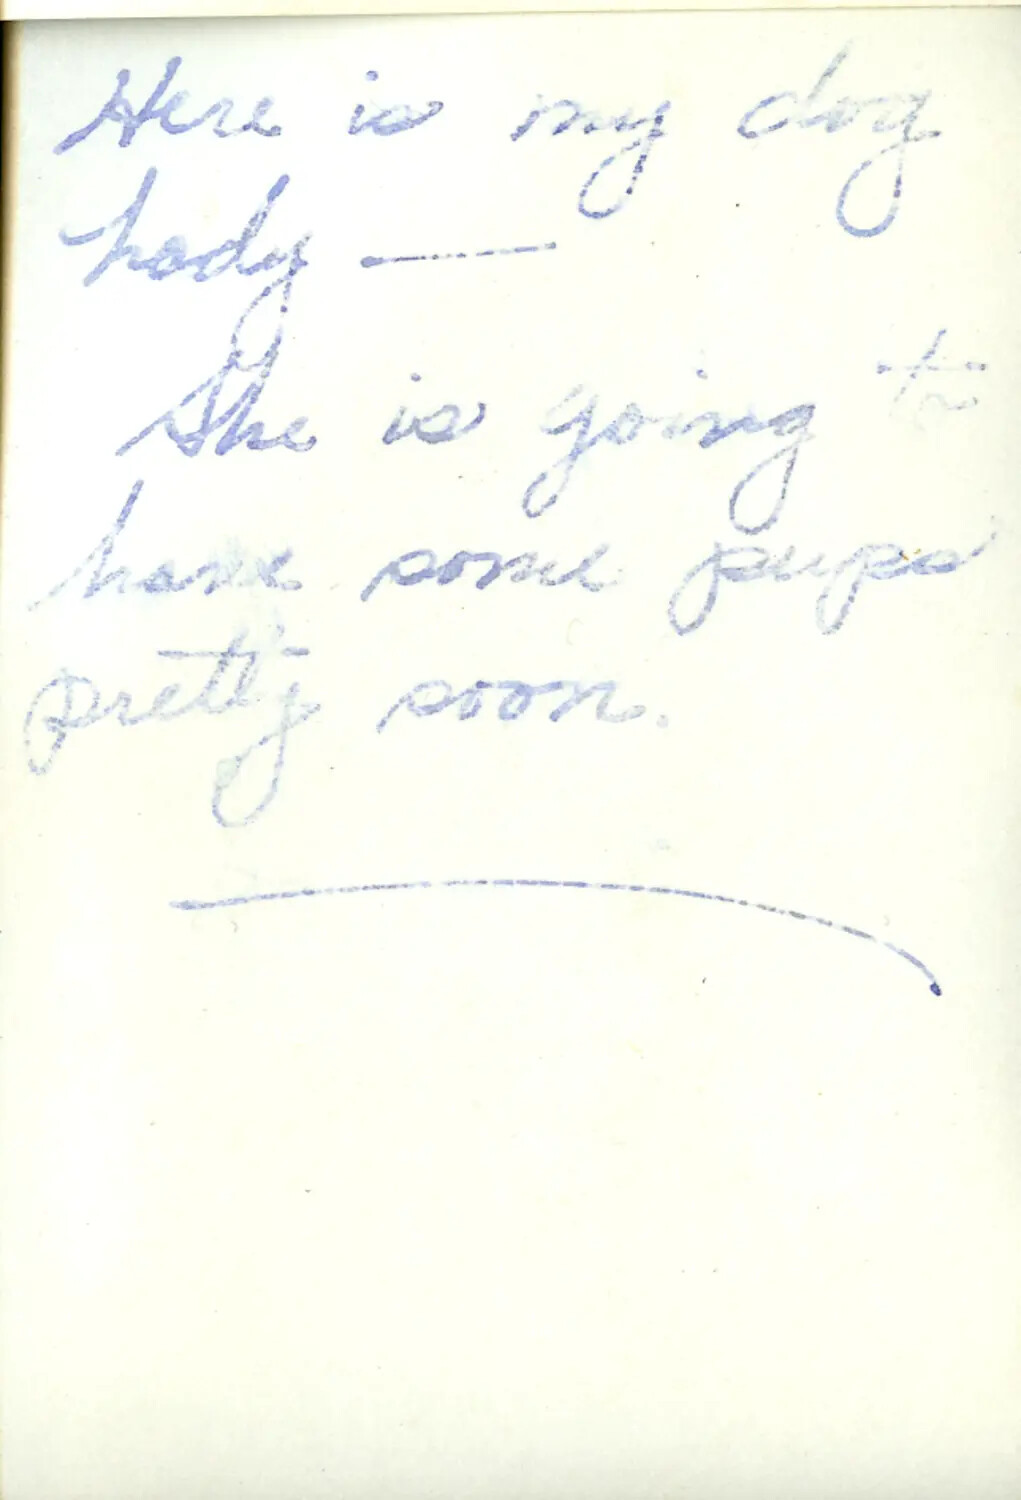 Here is my dog
Lady —
She is going to
have some pups
pretty soon.